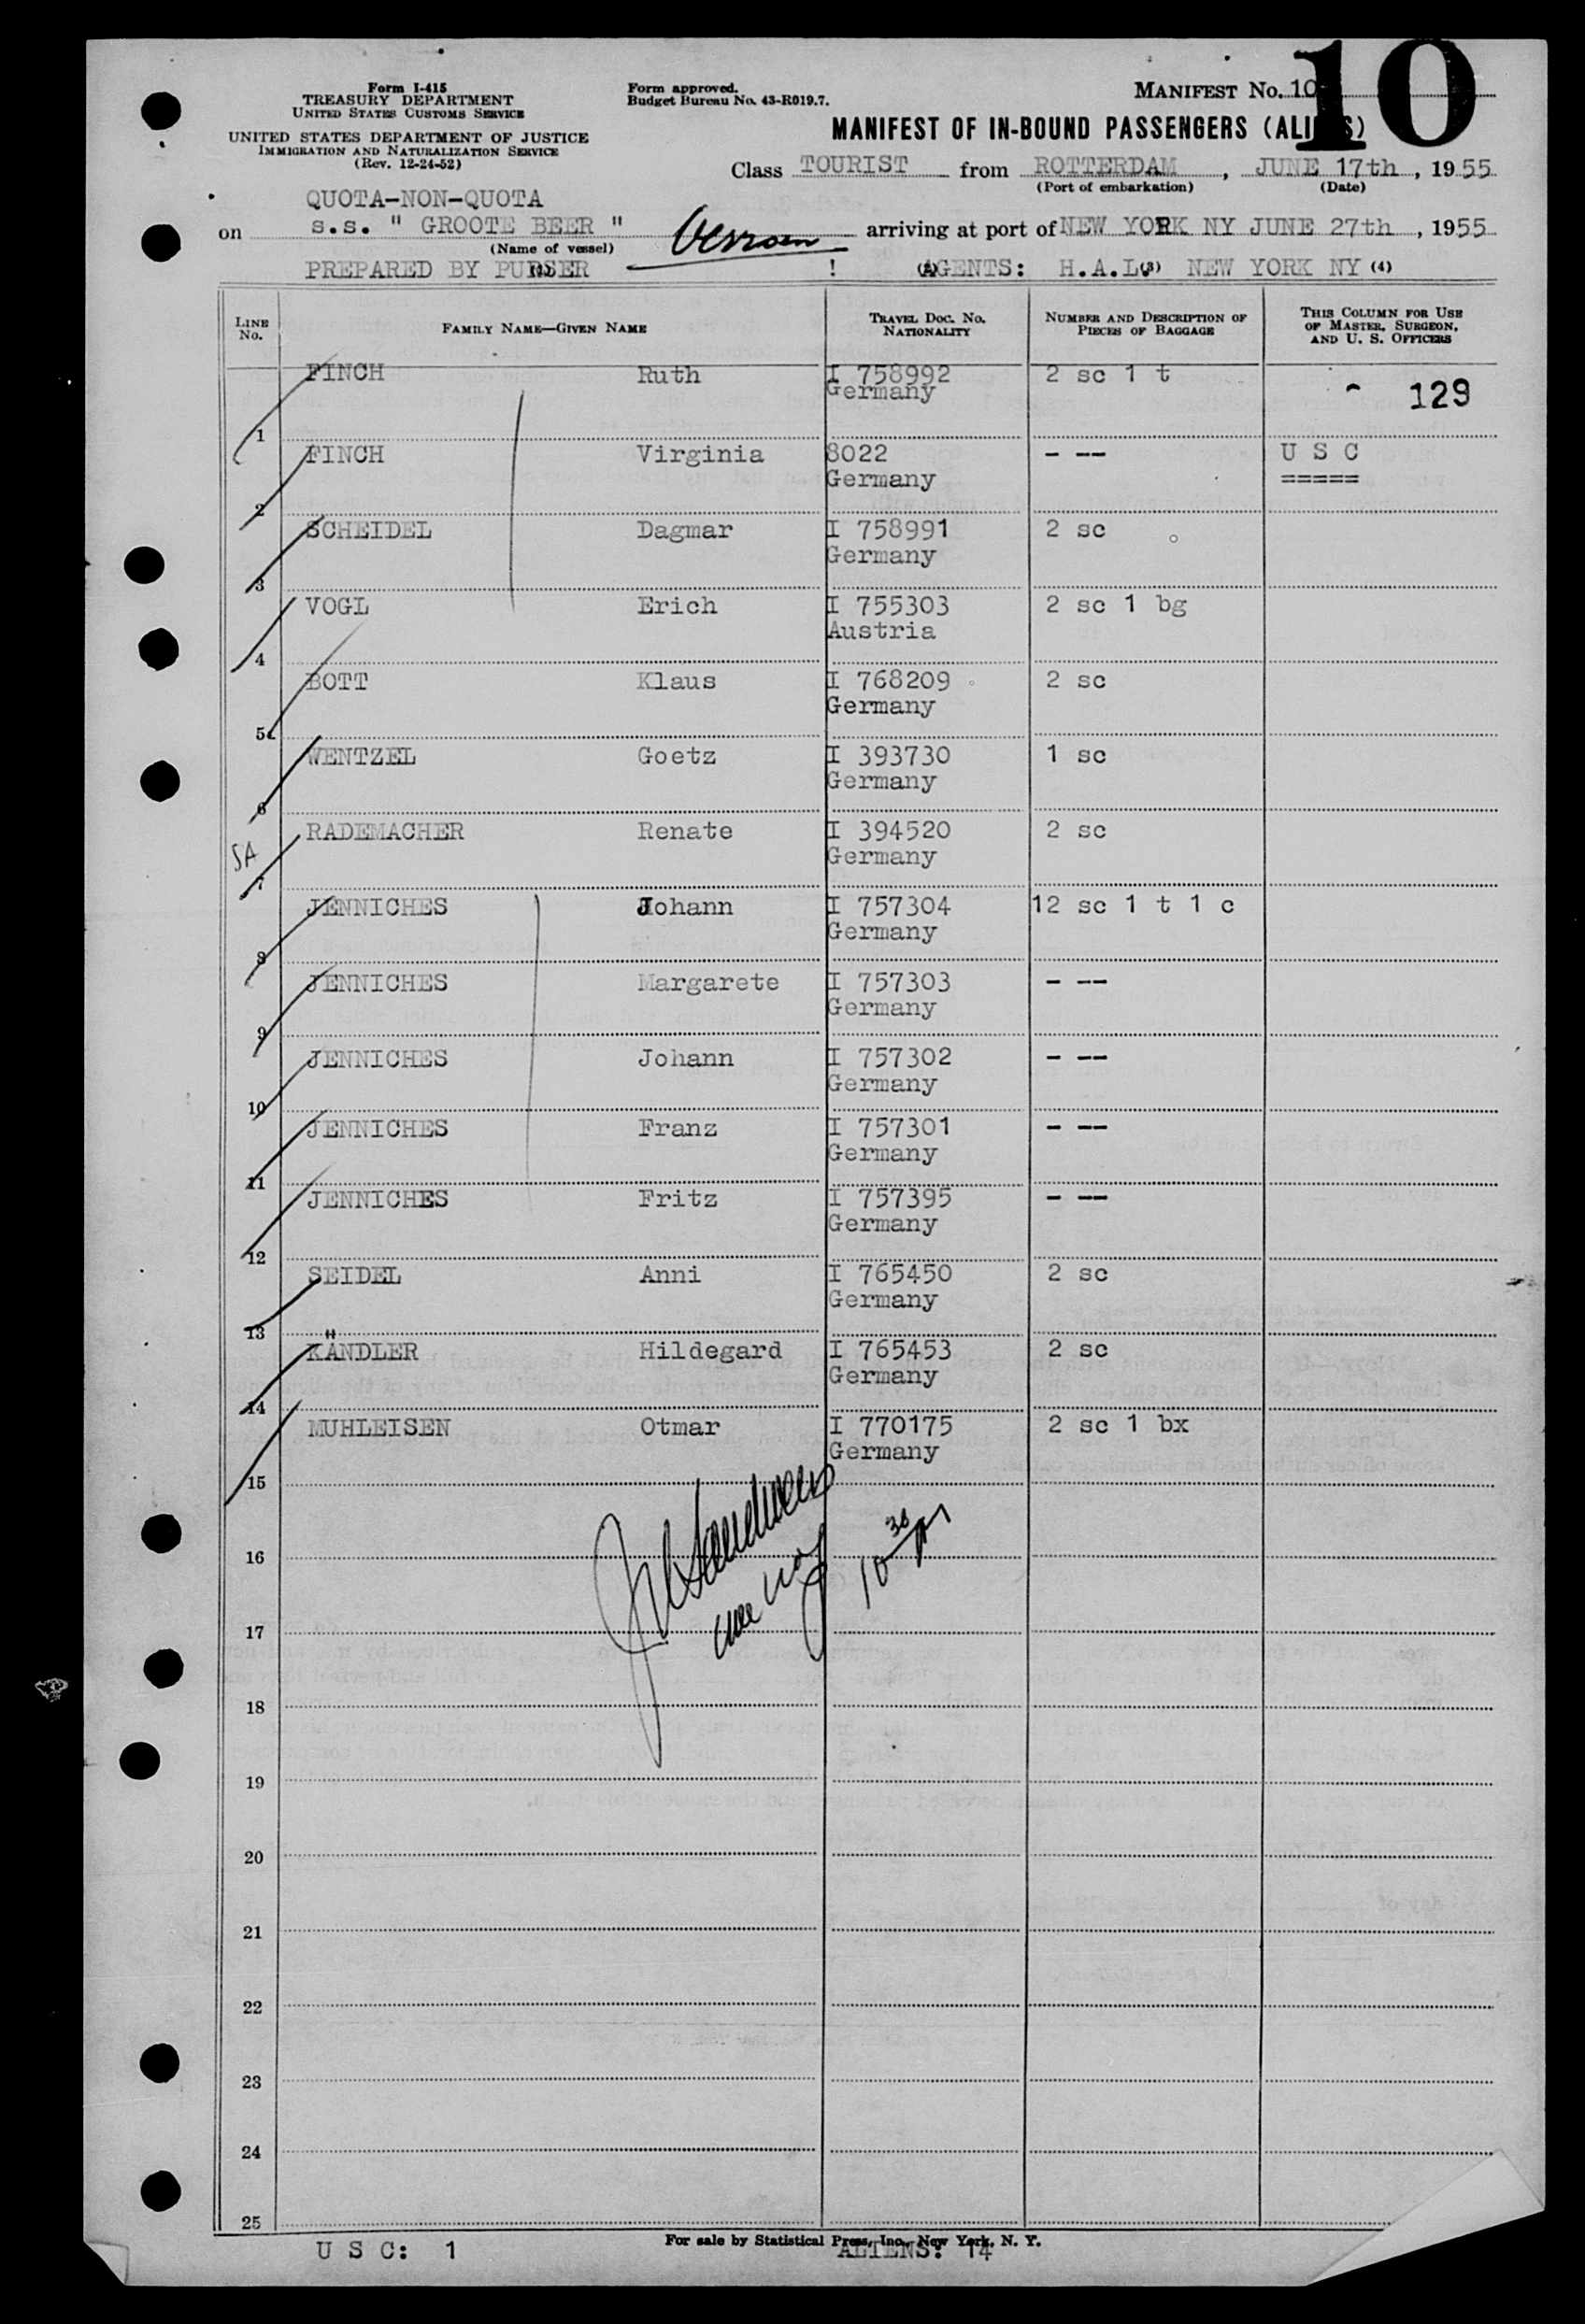 10
Form I-415
TREASURY DEPARTMENT
UNITED STATES CUSTOMS SERVICE
UNITED STATES DEPARTMENT OF JUSTICE
IMMIGRATION AND NATURALIZATION SERVICE
(Rev. 12-24-52)
Form approved.
Budget Bureau No. 43-R019.7.
MANIFEST No. 10
MANIFEST OF IN-BOUND PASSENGERS (ALIENS)
Class TOURIST from ROTTERDAM, JUNE 17th, 1955
(Port of embarkation) (Date)
QUOTA-NON-QUOTA
on s.s. " GROOTE BEER " arriving at port of NEW YORK NY JUNE 27th, 1955
(Name of vessel)
PREPARED BY PURSER ! (2) AGENTS: H.A.L. (3) NEW YORK NY (4)
LINE No. FAMILY NAME—GIVEN NAME TRAVEL DOC. NO. NATIONALITY NUMBER AND DESCRIPTION OF PIECES OF BAGGAGE THIS COLUMN FOR USE OF MASTER, SURGEON, AND U. S. OFFICERS
1 FINCH Ruth I 758992 2 sc 1 t 129
Germany
2 FINCH Virginia 8022 - -- U S C
Germany =====
3 SCHEIDEL Dagmar I 758991 2 sc
Germany
4 VOGL Erich I 755303 2 sc 1 bg
Austria
5 BOTT Klaus I 768209 2 sc
Germany
6 WENTZEL Goetz I 393730 1 sc
Germany
SA
7 RADEMACHER Renate I 394520 2 sc
Germany
8 JENNICHES Johann I 757304 12 sc 1 t 1 c
Germany
9 JENNICHES Margarete I 757303 - --
Germany
10 JENNICHES Johann I 757302 - --
Germany
11 JENNICHES Franz I 757301 - --
Germany
12 JENNICHES Fritz I 757395 - --
Germany
13 SEIDEL Anni I 765450 2 sc
Germany
14 KÄNDLER Hildegard I 765453 2 sc
Germany
15 MUHLEISEN Otmar I 770175 2 sc 1 bx
Germany
16
17
18
19
20
21
22
23
24
25
For sale by Statistical Press, Inc., New York, N. Y.
U S C: 1 ALIENS: 14